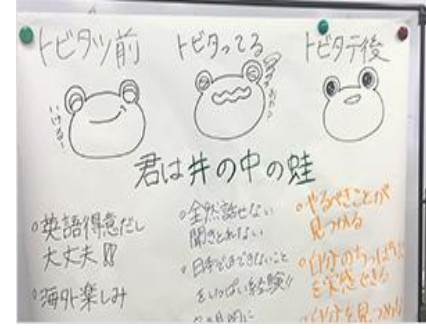 トビタツ前
トビタってる
トビタテ後
いける!
君は井の中の蛙
○英語得意だし
大丈夫!!
○海外楽しみ
○全然話せない
聞きとれない
○日本でできないこと
をいっぱい経験!!
○やるべきことが
見つかる
○自分のちっぽけさ
を実感できる
○自分を見つめ